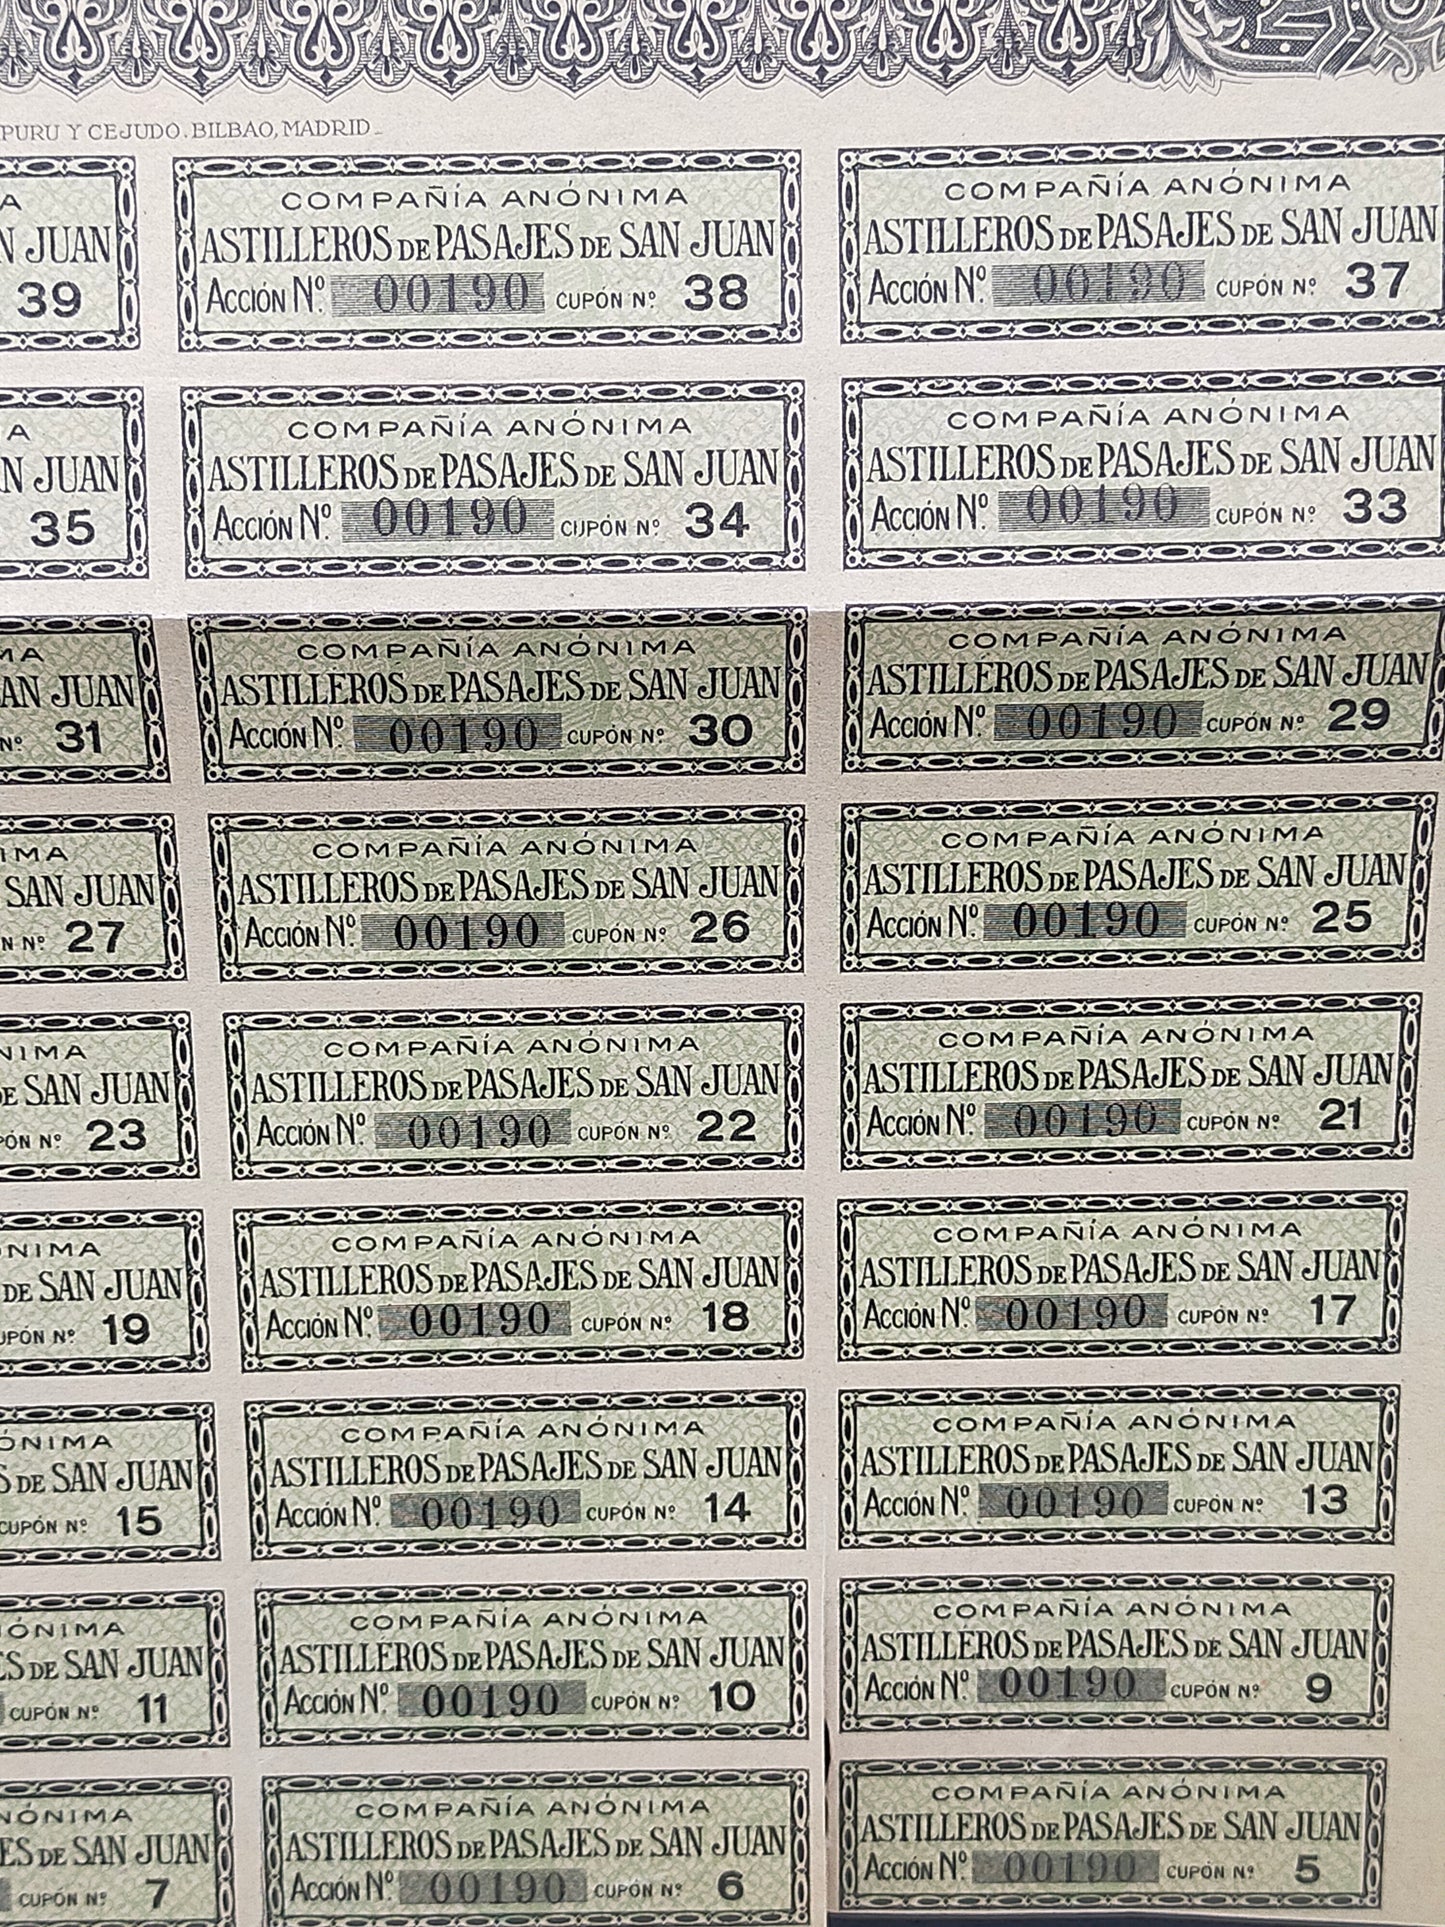 PURU Y CEJUDO. BILBAO, MADRID_
A
N JUAN
39
COMPAÑÍA ANÓNIMA
ASTILLEROS DE PASAJES DE SAN JUAN
ACCIÓN Nº. 00190 CUPÓN Nº. 38
COMPAÑÍA ANÓNIMA
ASTILLEROS DE PASAJES DE SAN JUAN
ACCIÓN Nº. 00190 CUPÓN Nº. 37
A
N JUAN
35
COMPAÑÍA ANÓNIMA
ASTILLEROS DE PASAJES DE SAN JUAN
ACCIÓN Nº. 00190 CUPÓN Nº. 34
COMPAÑÍA ANÓNIMA
ASTILLEROS DE PASAJES DE SAN JUAN
ACCIÓN Nº. 00190 CUPÓN Nº. 33
MA
AN JUAN
Nº. 31
COMPAÑÍA ANÓNIMA
ASTILLEROS DE PASAJES DE SAN JUAN
ACCIÓN Nº. 00190 CUPÓN Nº. 30
COMPAÑÍA ANÓNIMA
ASTILLEROS DE PASAJES DE SAN JUAN
ACCIÓN Nº. 00190 CUPÓN Nº. 29
IMA
SAN JUAN
N Nº. 27
COMPAÑÍA ANÓNIMA
ASTILLEROS DE PASAJES DE SAN JUAN
ACCIÓN Nº. 00190 CUPÓN Nº. 26
COMPAÑÍA ANÓNIMA
ASTILLEROS DE PASAJES DE SAN JUAN
ACCIÓN Nº. 00190 CUPÓN Nº. 25
NIMA
E SAN JUAN
PÓN Nº. 23
COMPAÑÍA ANÓNIMA
ASTILLEROS DE PASAJES DE SAN JUAN
ACCIÓN Nº. 00190 CUPÓN Nº. 22
COMPAÑÍA ANÓNIMA
ASTILLEROS DE PASAJES DE SAN JUAN
ACCIÓN Nº. 00190 CUPÓN Nº. 21
NIMA
DE SAN JUAN
UPÓN Nº. 19
COMPAÑÍA ANÓNIMA
ASTILLEROS DE PASAJES DE SAN JUAN
ACCIÓN Nº. 00190 CUPÓN Nº. 18
COMPAÑÍA ANÓNIMA
ASTILLEROS DE PASAJES DE SAN JUAN
ACCIÓN Nº. 00190 CUPÓN Nº. 17
ÓNIMA
S DE SAN JUAN
CUPÓN Nº. 15
COMPAÑÍA ANÓNIMA
ASTILLEROS DE PASAJES DE SAN JUAN
ACCIÓN Nº. 00190 CUPÓN Nº. 14
COMPAÑÍA ANÓNIMA
ASTILLEROS DE PASAJES DE SAN JUAN
ACCIÓN Nº. 00190 CUPÓN Nº. 13
ÓNIMA
ES DE SAN JUAN
CUPÓN Nº. 11
COMPAÑÍA ANÓNIMA
ASTILLEROS DE PASAJES DE SAN JUAN
ACCIÓN Nº. 00190 CUPÓN Nº. 10
COMPAÑÍA ANÓNIMA
ASTILLEROS DE PASAJES DE SAN JUAN
ACCIÓN Nº. 00190 CUPÓN Nº. 9
NÓNIMA
ES DE SAN JUAN
CUPÓN Nº. 7
COMPAÑÍA ANÓNIMA
ASTILLEROS DE PASAJES DE SAN JUAN
ACCIÓN Nº. 00190 CUPÓN Nº. 6
COMPAÑÍA ANÓNIMA
ASTILLEROS DE PASAJES DE SAN JUAN
ACCIÓN Nº. 00190 CUPÓN Nº. 5